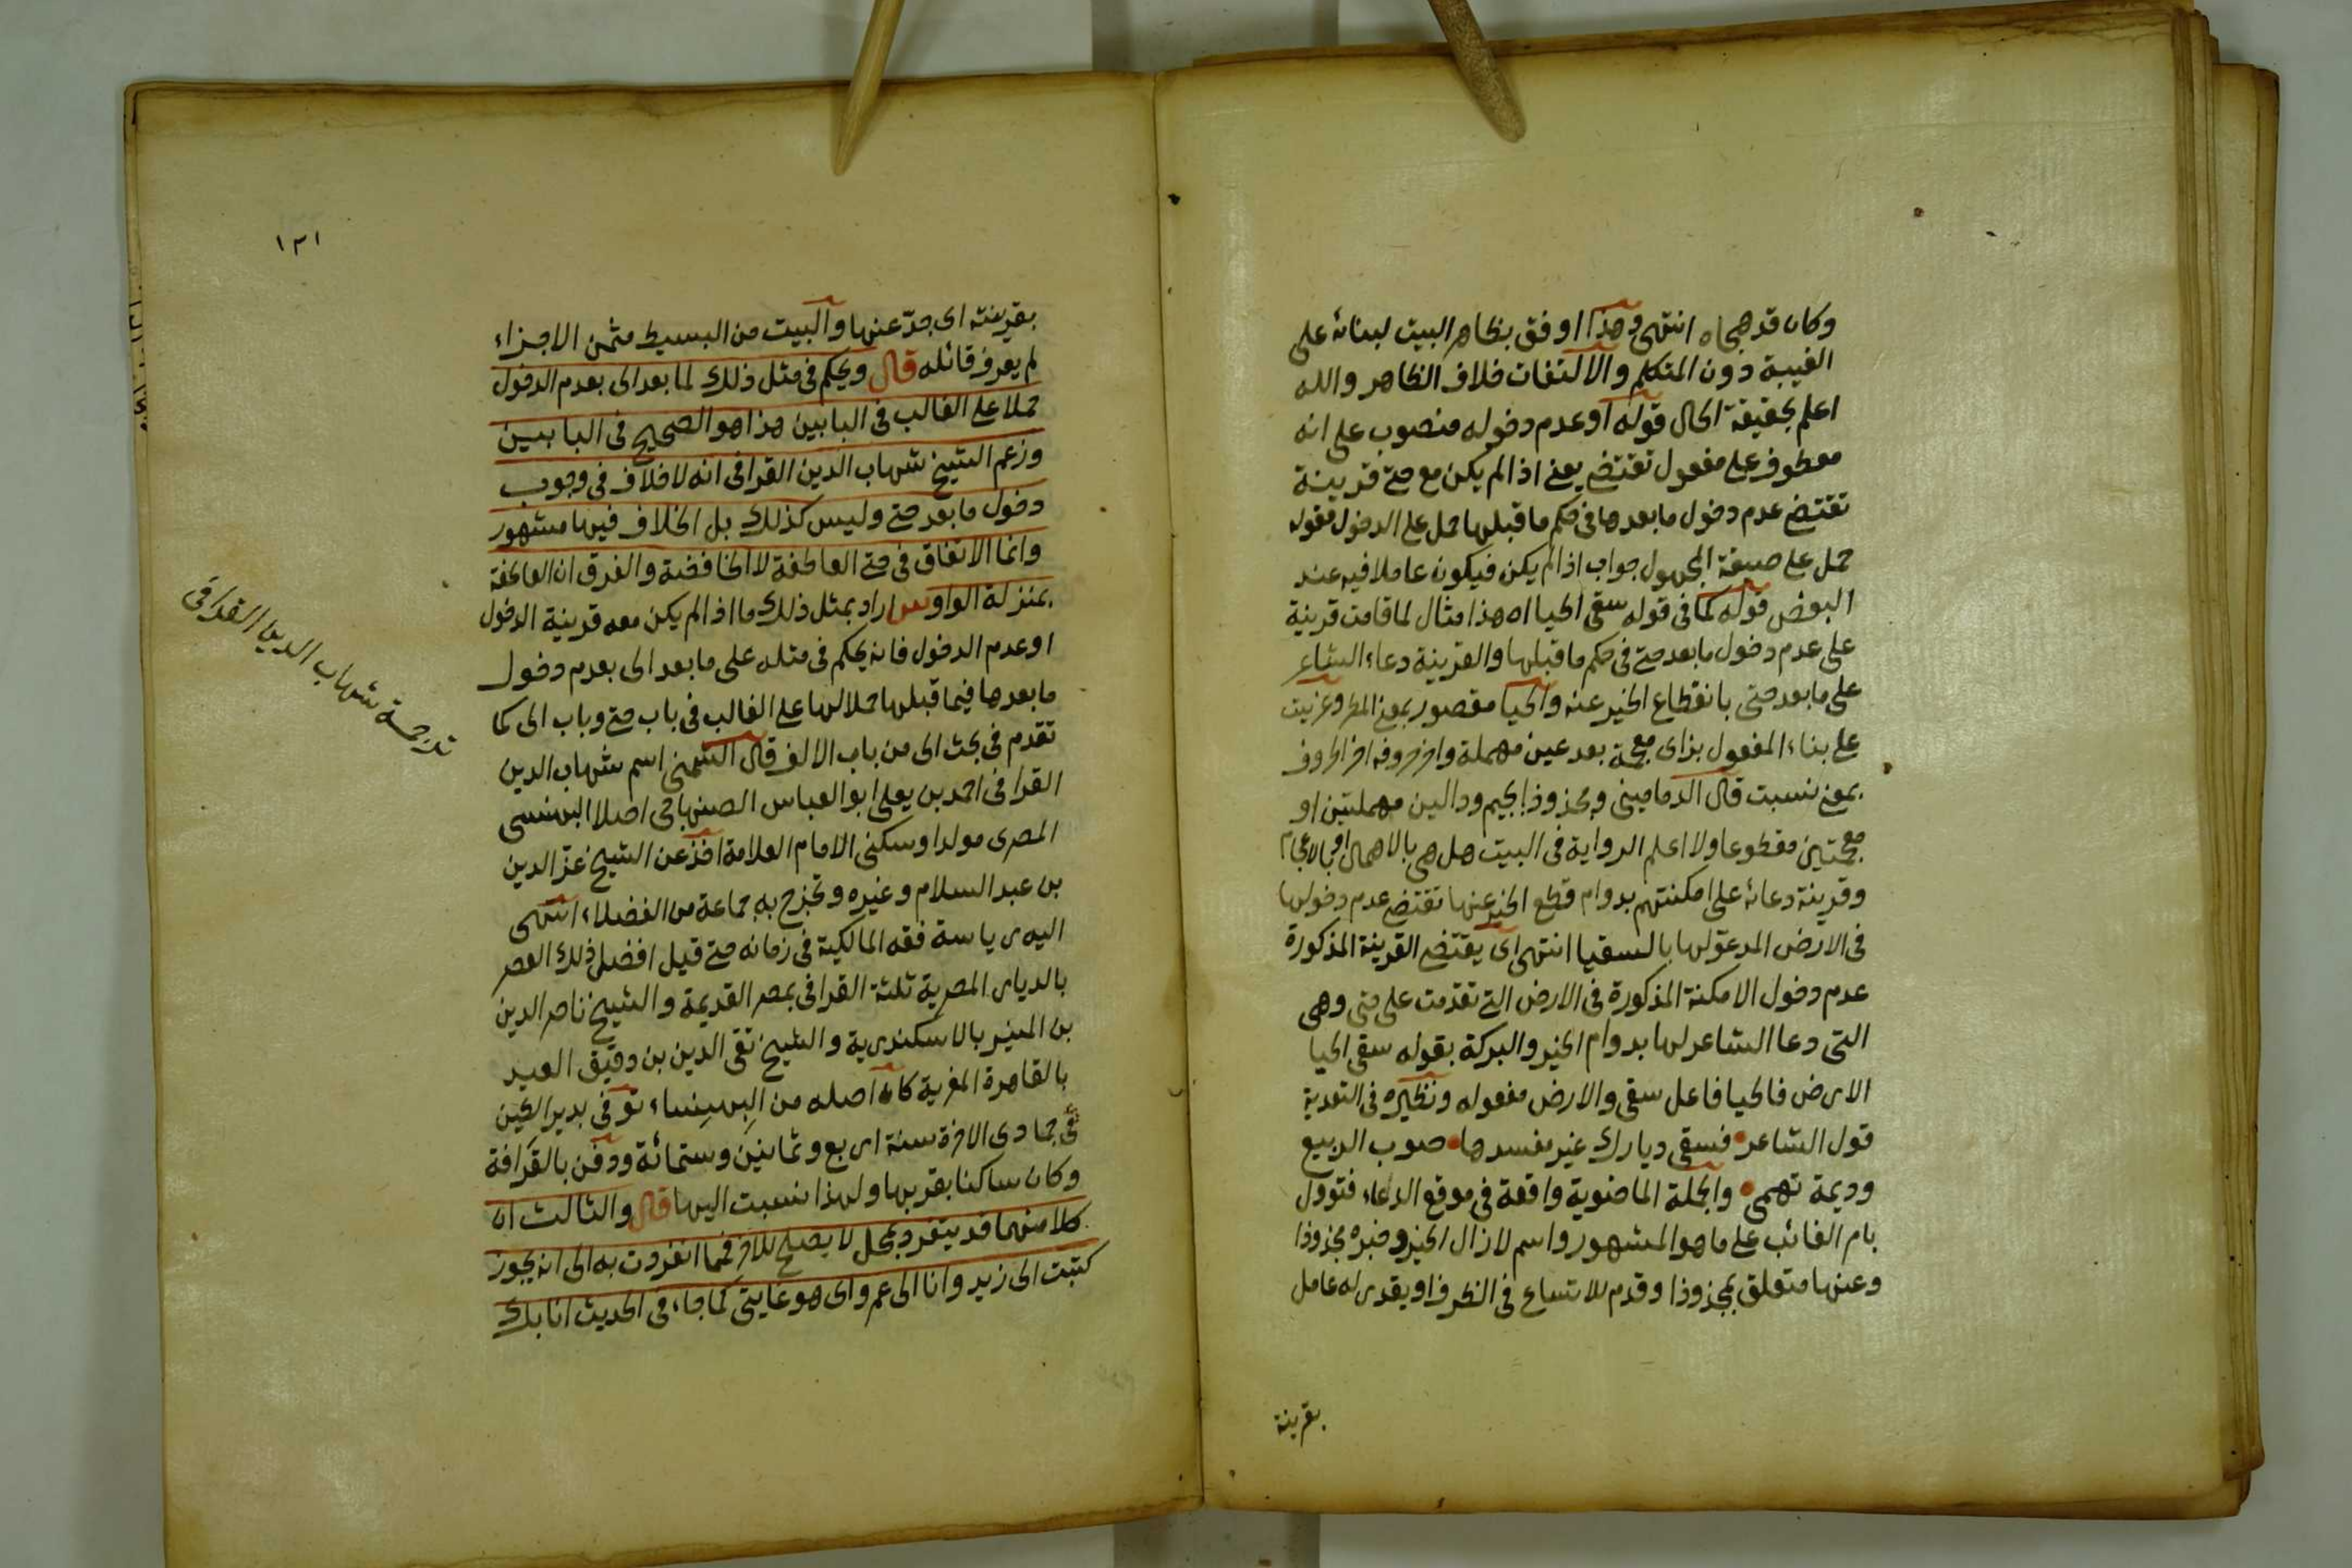 وكان قد هجاه انتهى وهذا اوفق بظاهر البيت لبنائه على
الغيبة دون المتكلم والالتفات خلاف الظاهر والله
اعلم بحقيقة الحال قوله او عدم دخوله منصوب على انه
معطوف على مفعول تقتضي يعني اذا لم يكن مع حتى قرينة
تقتضي عدم دخول ما بعدها في حكم ما قبلها حمل على الدخول فقوله
حمل على صيغة المجهول جواب اذا لم يكن فيكون عاملا فيه عند
البعض قوله كما في قوله سقى الحيا اه هذا مثال لما قامت قرينة
على عدم دخول ما بعد حتى في حكم ما قبلها والقرينة دعاء الشاعر
على ما بعد حتى بانقطاع الخير عنه والحيا مقصور بمعنى المطر وعزيت
على بناء المفعول بزاى معجمة بعد عين مهملة واخر حروفه اخر الحروف
بمعنى نسبت قال الدماميني ومجذوذا بجيم ودالين مهملتين او
معجمتين مقطوعا ولا اعلم الرواية في البيت هل هي بالاهمال او بالاعجام
وقرينة دعائه على امكنتهم بدوام قطع الخير عنها تقتضي عدم دخولها
في الارض المدعو لها بالسقيا انتهى اى يقتضي القرينة المذكورة
عدم دخول الامكنة المذكورة في الارض التي تقدمت على حتى وهي
التي دعا الشاعر لها بدوام الخير والبركة بقوله سقى الحيا
الارض فالحيا فاعل سقى والارض مفعوله ونظيره في التعدية
قول الشاعر فسقى ديارك غير مفسدها صوب الربيع
وديمة تهمى والجملة الماضوية واقعة في موقع الدعاء فتوول
بامر الغائب على ما هو المشهور واسم لا زال الخير وخبره مجذوذا
وعنها متعلق بمجذوذا وقدم للاتساع في الظرف او يقدر له عامل
بقرينة
١٣١
بقرينته اى جدّ عنها والبيت من البسيط مثمن الاجزاء
لم يعرف قائله قال ويحكم في مثل ذلك لما بعد الى بعدم الدخول
حملا على الغالب في البابين هذا هو الصحيح في البابين
وزعم الشيخ شهاب الدين القرافى انه لا خلاف في وجوب
دخول ما بعد حتى وليس كذلك بل الخلاف فيها مشهور
وانما الاتفاق في حتى العاطفة لا الخافضة والفرق ان العاطفة
بمنزلة الواو س اراد بمثل ذلك ما اذا لم يكن معه قرينة الدخول
او عدم الدخول فانه يحكم في مثله على ما بعد الى بعدم دخول
ما بعدها فيما قبلها حملا لها على الغالب في باب حتى وباب الى كما
تقدم في بحث الى من باب الالف قال الشمني اسم شهاب الدين
القرافى احمد بن يعلى ابو العباس الصنهاجى اصلا البهنسى
المصرى مولدا وسكنى الامام العلامة اخذ عن الشيخ عز الدين
بن عبد السلام وغيره وتخرج به جماعة من الفضلاء انتهى
اليه رياسة فقه المالكية في زمانه حتى قيل افضل ذلك العصر
بالديار المصرية ثلثة القرافى بمصر القديمة والشيخ ناصر الدين
بن المنير بالاسكندرية والشيخ تقى الدين بن دقيق العيد
بالقاهرة المغزية كان اصله من البهنساء توفى بدير الطين
في جمادى الاخرة سنة اربع وثمانين وستمائة ودفن بالقرافة
وكان ساكنا بقربها ولهذا نسبت اليها قال والثالث ان
كلا منهما قد ينفرد بمحل لا يصلح للاخر فمما انفردت به الى انه يجوز
كتبت الى زيد وانا الى عمرو اى هو غايتي كما جاء في الحديث انا بك
ترجمة شهاب الدين القرافى